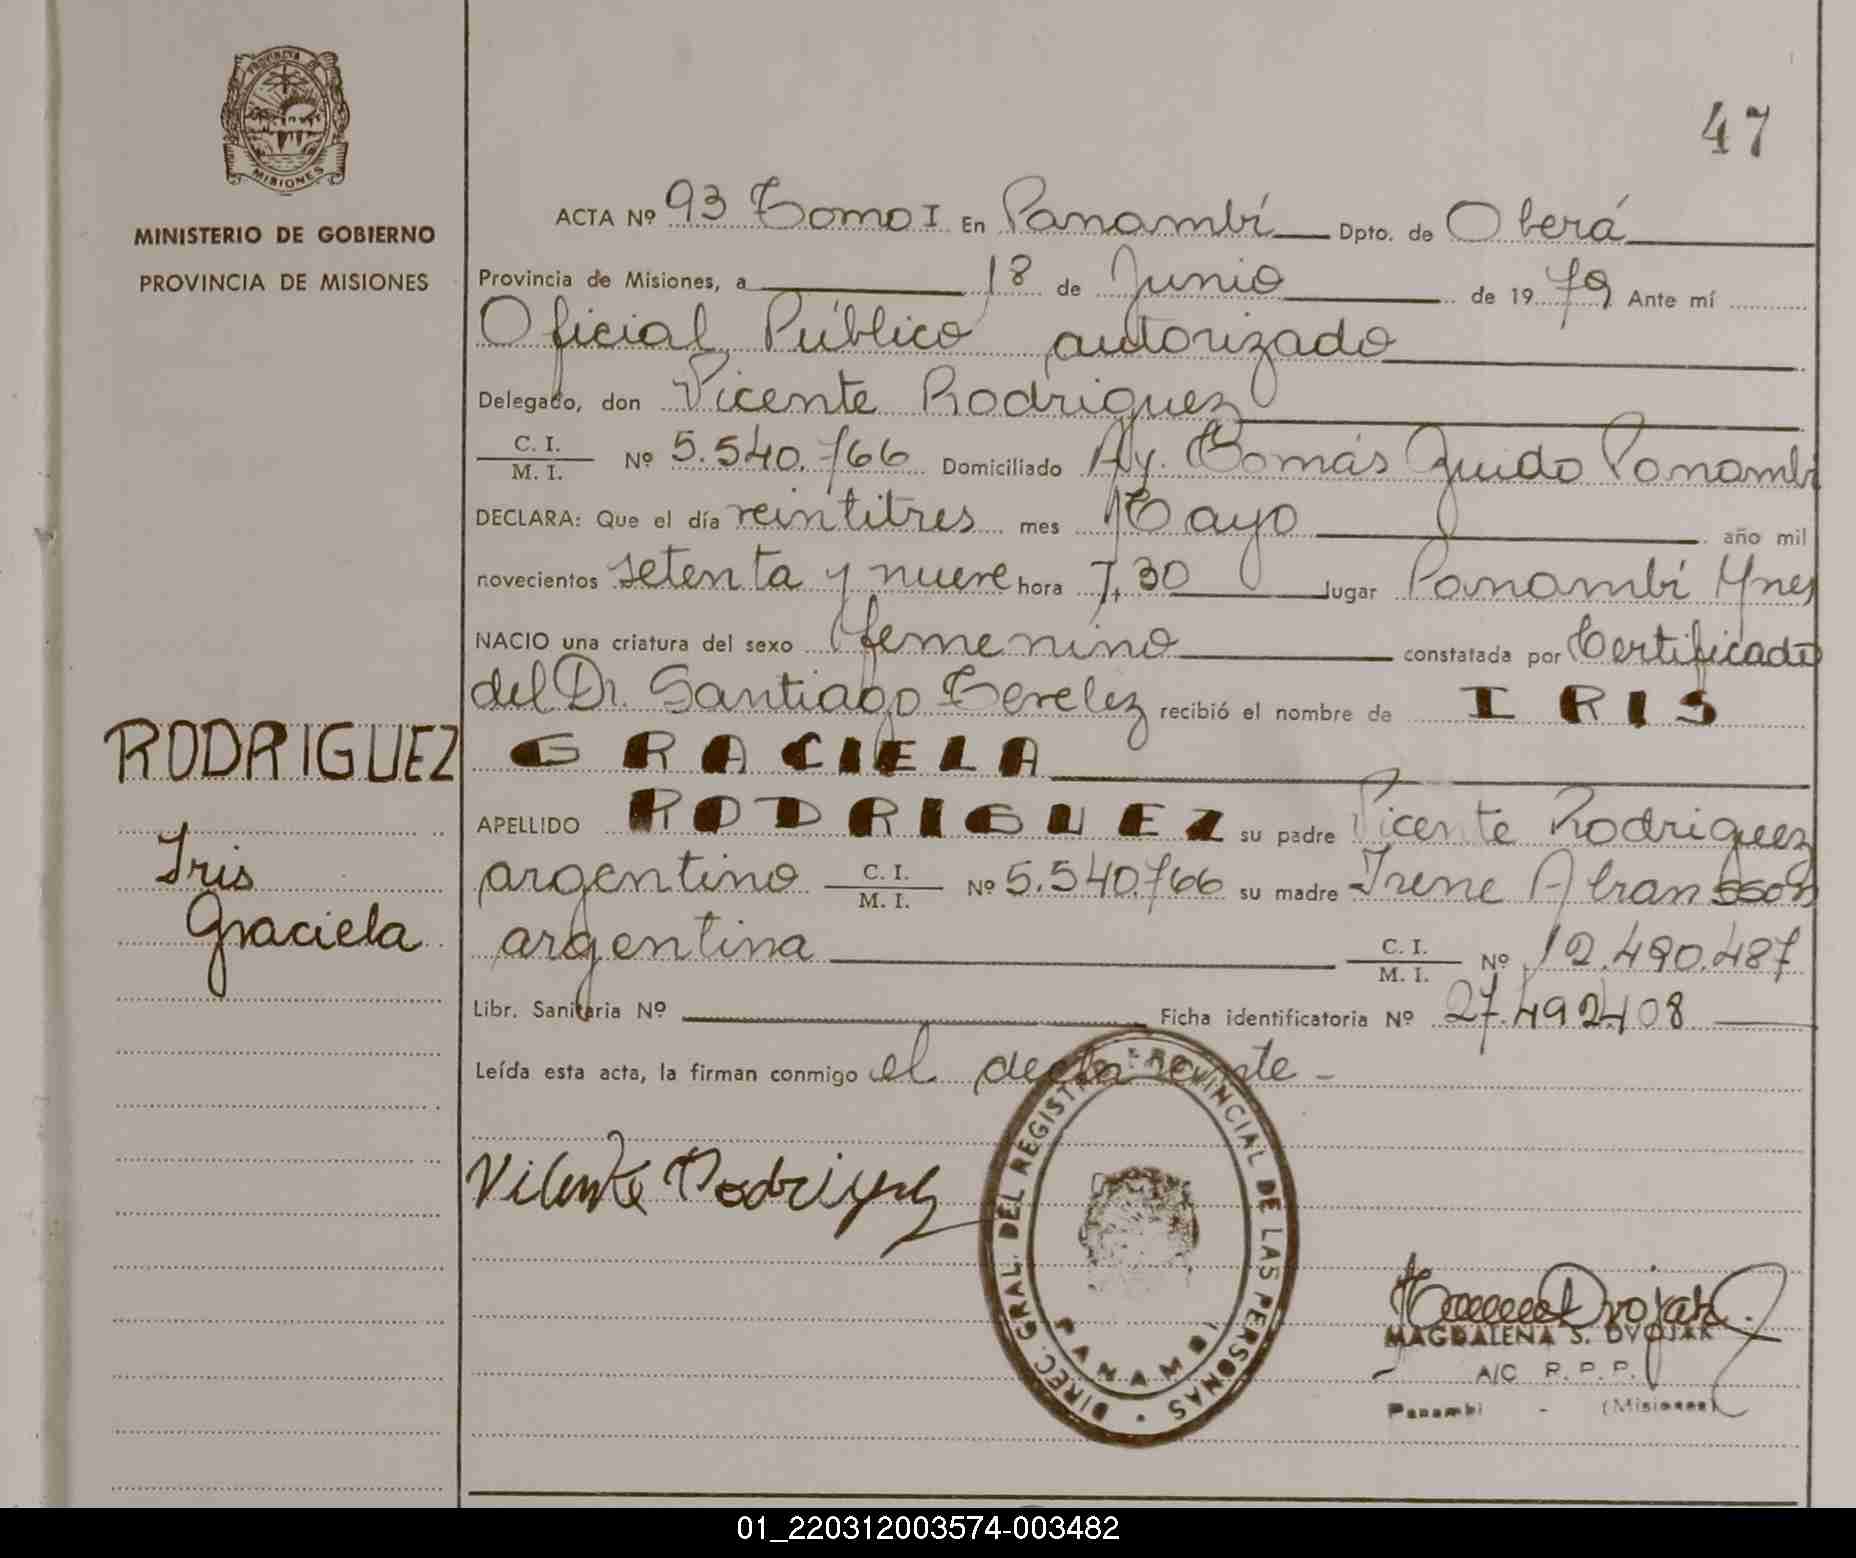 PROVINCIA DE
MISIONES
MINISTERIO DE GOBIERNO
PROVINCIA DE MISIONES
47
ACTA Nº 93 Tomo I En Panambí Dpto. de Oberá
Provincia de Misiones, a 18 de Junio de 1979 Ante mí
Oficial Público autorizado
Delegado, don Vicente Rodriguez
C. I.
M. I. Nº 5.540.766 Domiciliado Av. Tomás Guido Panambí
DECLARA: Que el día veintitres mes Mayo año mil
novecientos setenta y nueve hora 7,30 lugar Panambí Mnes
NACIO una criatura del sexo femenino constatada por Certificado
del Dr. Santiago recibió el nombre de IRIS
GRACIELA
APELLIDO RODRIGUEZ su padre Vicente Rodriguez
argentino C. I.
M. I. Nº 5.540.766 su madre Irene Abransson
argentina C. I.
M. I. Nº 12.490.487
Libr. Sanitaria Nº Ficha identificatoria Nº 27.492408
Leída esta acta, la firman conmigo el declarante -
RODRIGUEZ
Iris
Graciela
Vicente Rodriguez
DIREC. GRAL. DEL REGISTRO PROVINCIAL DE LAS PERSONAS
PANAMBI
Dvojak
MAGDALENA S. DVOJAK
A/C R. P. P.
Panambi - (Misiones)
01_220312003574-003482